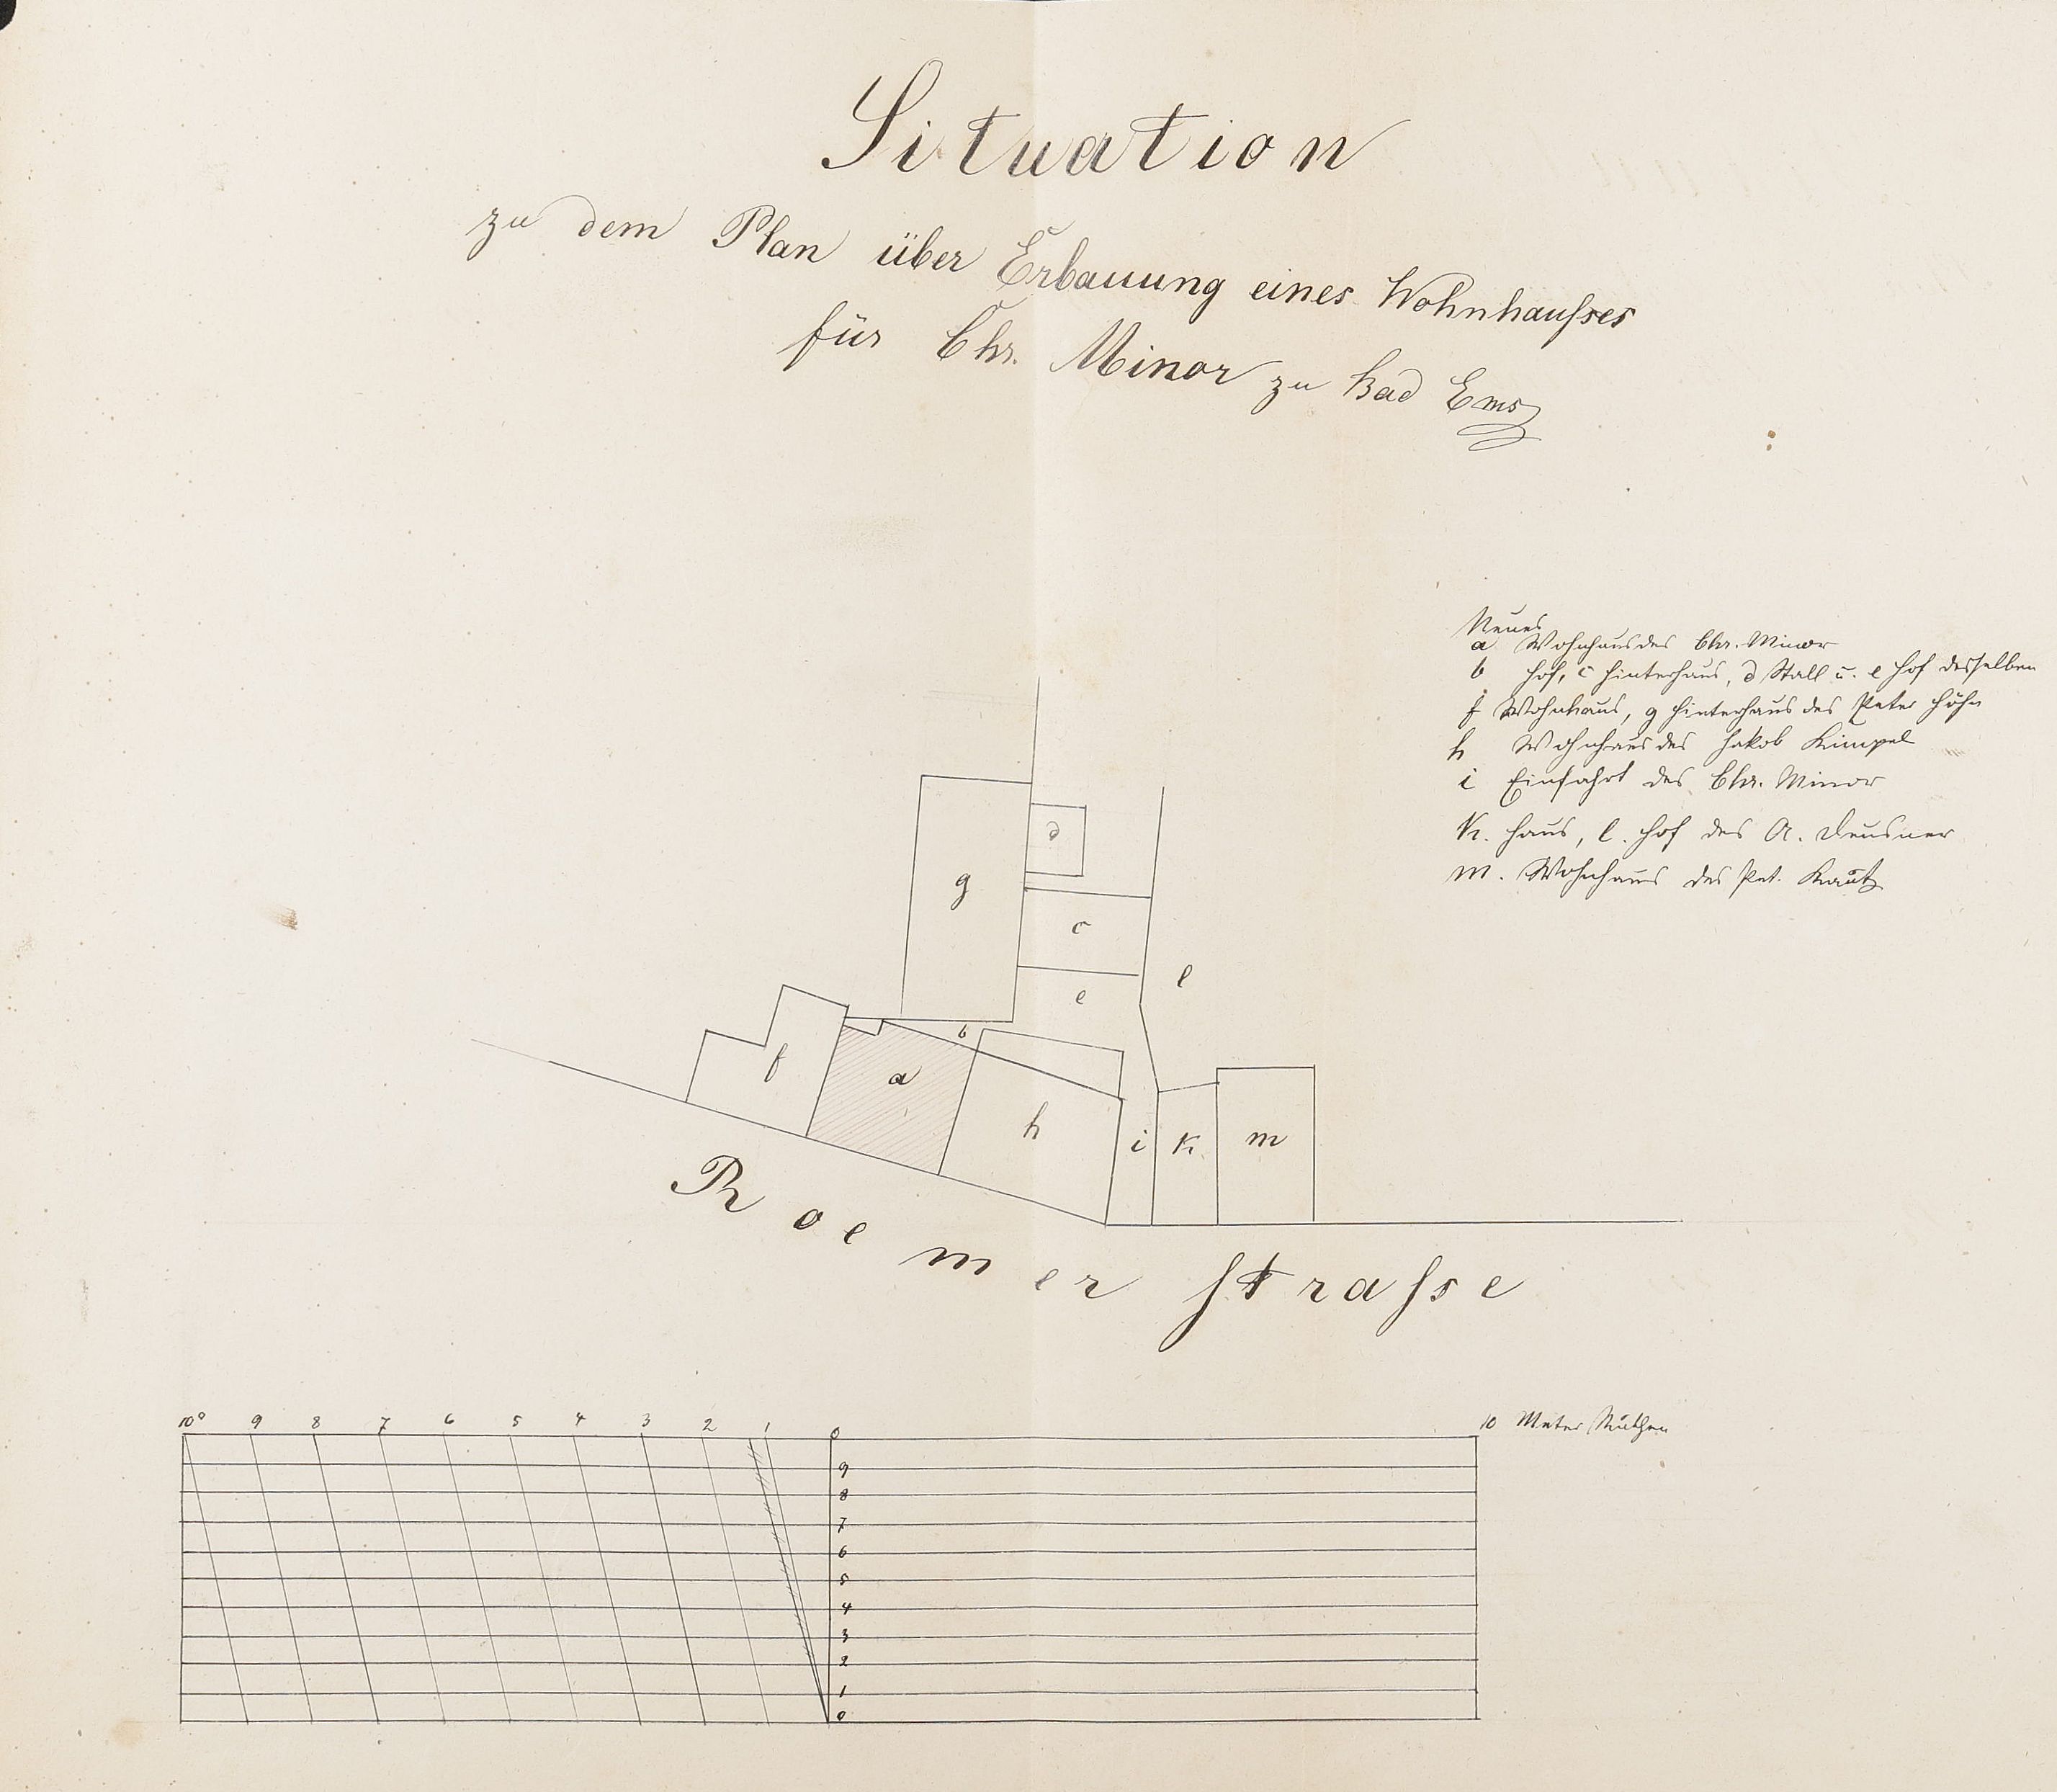 Situation
zu dem Plan über Erbauung eines Wohnhauſses
für Chr. Minor zu Bad Ems
Neues
a Wohnhaus des Chr. Minor
b Hof, c Hinterhaus, d Stall u. e Hof desselben
f Wohnhaus, g Hinterhaus des Peter Höhn
h Wohnhaus des Jakob Kimpel
i Einfahrt des Chr. Minor
K. Haus, l. Hof des A. Deusner
m. Wohnhaus des Pet. Kautz
d
g
c
l
e
b
f
a
h
i
K
m
Roemer ſtraſse
10° 9 8 7 6 5 4 3 2 1 0 10 Meter Ruthen
9
8
7
6
5
4
3
2
1
0